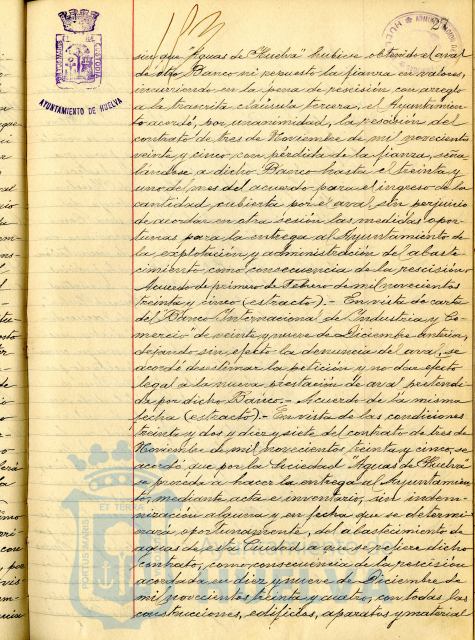 183
AYUNTAMIENTO DE HUELVA
sin que "Aguas de Huelva" hubiese obtenido el aval
de otro Banco ni repuesto la fianza en valores,
incurriendo en la pena de rescisión con arreglo
a la trascrita cláusula tercera, el Ayuntamien-
to acordó, por unanimidad, la rescisión del
contrato de tres de Noviembre de mil novecientos
veinte y cinco con pérdida de la fianza, seña-
lándose a dicho Banco hasta el treinta y
uno del mes del acuerdo para el ingreso de la
cantidad cubierta por el aval, sin perjuicio
de acordar en otra sesión las medidas opor-
tunas para la entrega al Ayuntamiento de
la explotación y administración del abaste-
cimiento como consecuencia de la rescisión
Acuerdo de primero de Febrero de mil novecientos
treinta y cinco (extracto).- En vista de carta
del Banco Internacional de Industria y Co-
mercio" de veinte y nueve de Diciembre anterior,
dejando sin efecto la denuncia del aval, se
acordó desestimar la petición y no dar efecto
legal a la nueva prestación de aval pretendi-
da por dicho Banco.- Acuerdo de la misma
fecha (extracto).- En vista de las condiciones
treinta y dos y diez y siete del contrato de tres de
Noviembre de mil novecientos treinta y cinco, se
acordó que por la Sociedad "Aguas de Huelva"
se proceda a hacer la entrega al Ayuntamien-
to, mediante acta e inventario, sin indem-
nización alguna y en fecha que se determi-
nará oportunamente, del abastecimiento de
aguas de esta Ciudad a que se refiere dicho
contrato, como consecuencia de la rescisión
acordada en diez y nueve de Diciembre de
mil novecientos treinta y cuatro, con todas las
construcciones, edificios, aparatos y material
PORTUS MARIS
ET TERRÆ
Ayuntamiento de